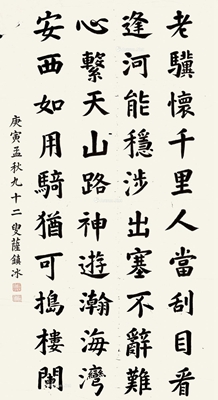 老驥懷千里人當刮目看
逢河能穩涉出塞不辭難
心繫天山路神遊瀚海灣
安西如用騎猶可搗樓闌
庚寅孟秋九十二叟薩鎮冰